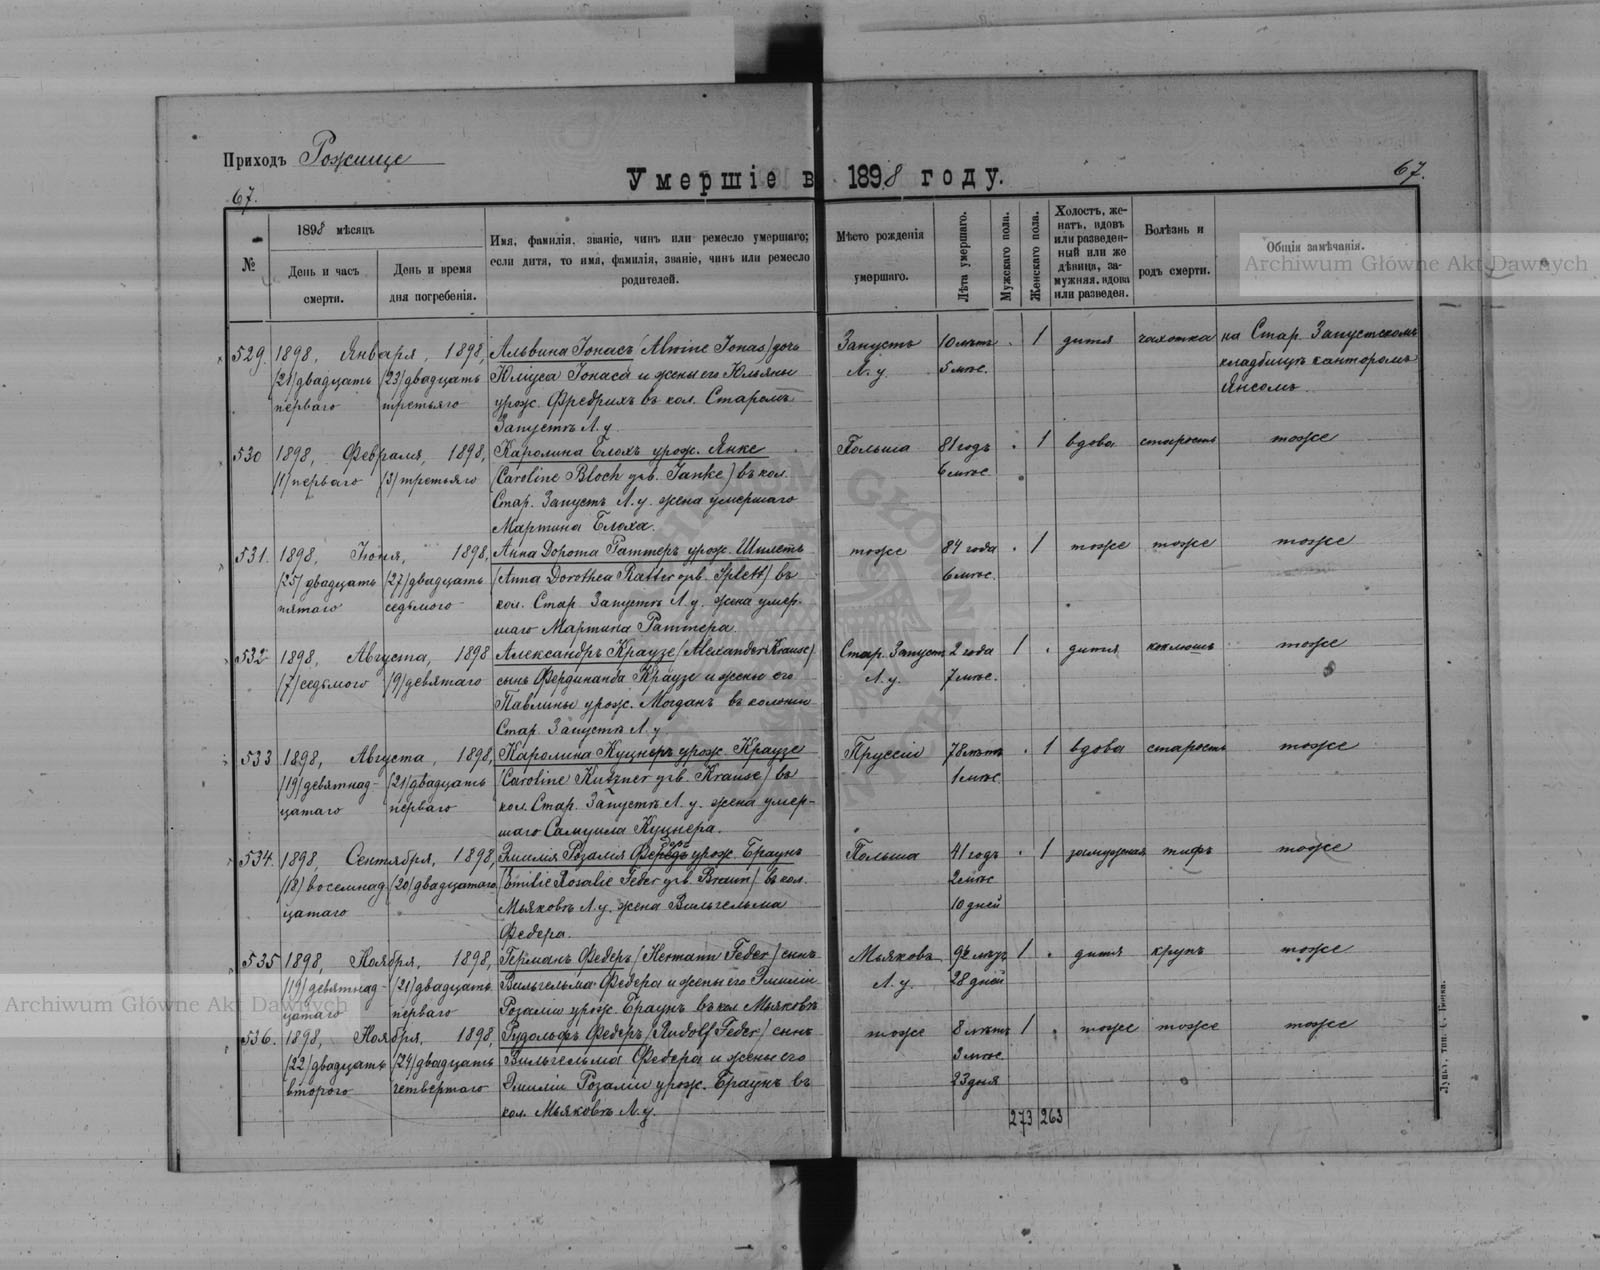 Приходъ Рожище
Умершіе в 1898 году.
67.
67.
№
1898 мѣсяцъ
День и часъ смерти.
День и время дня погребенія.
Имя, фамилія, званіе, чинъ или ремесло умершаго;
если дитя, то имя, фамилія, званіе, чинъ или ремесло
родителей.
Мѣсто рожденія
умершаго.
Лѣта умершаго.
Мужскаго пола.
Женскаго пола.
Холостъ, же-
натъ, вдовъ
или разведен-
ный или же
дѣвица, за-
мужняя, вдова
или разведен.
Болѣзнь и
родъ смерти.
Общія замѣчанія.
Archiwum Główne Akt Dawnych
529. 1898, Января, 1898, Альвина Іонасъ (Alwine Jonas) дочь Запустъ 10 лѣтъ . 1 дитя чахотка на Стар. Запустскомъ
(21) двадцать (23) двадцать Юліуса Іонаса и жены его Юльяны Л. у. 5 мѣс. кладбищѣ канторомъ
перваго третьяго урож. Фредрихъ въ кол. Старомъ Янсомъ.
Запустѣ Л. у.
530 1898, Февраля, 1898, Каролина Блохъ урож. Янке Польша 81 годъ . 1 вдова старость тоже
(1) перваго (3) третьяго (Caroline Bloch geb. Janke) въ кол. 6 мѣс.
Стар. Запустъ Л. у. жена умершаго
Мартина Блоха.
531. 1898, Іюня, 1898, Анна Доротa Раттеръ урож. Шплетъ тоже 84 года . 1 тоже тоже тоже
(25) двадцать (27) двадцать (Anna Dorothea Ratter geb. Splett) въ 6 мѣс.
пятаго седьмого кол. Стар. Запустѣ Л. у. жена умер-
шаго Мартина Раттера.
532 1898, Августа, 1898 Александръ Краузе (Alexander Krause) Стар. Запустъ 2 года 1 . дитя коклюшъ тоже
(7) седьмого (9) девятаго сынъ Фердинанда Краузе и жены его Л. у. 7 мѣс.
Павлины урож. Могданъ въ колоніи
Стар. Запустѣ Л. у.
533 1898, Августа, 1898, Каролина Куцнеръ урож. Краузе Пруссіи 78 лѣтъ . 1 вдова старость тоже
(19) девятнад- (21) двадцать (Caroline Kutzner geb. Krause) въ 1 мѣс.
цатаго перваго кол. Стар. Запустѣ Л. у. жена умер-
шаго Самуила Куцнера.
534. 1898, Сентября, 1898, Эмилія Розалія Федеръ урож. Браунъ Польша 41 годъ . 1 замужная тифъ тоже
(18) восемнад- (20) двадцатаго (Emilie Rosalie Feder geb. Braun) въ кол. 2 мѣс.
цатаго Мьяковѣ Л. у. жена Вильгельма 10 дней
Федера.
535 1898, Ноября, 1898, Германъ Федеръ (Hermann Feder) сынъ Мьяковъ 9 1 . дитя крупъ тоже
(19) девятнад- (21) двадцать Вильгельма Федера и жены его Эмиліи Л. у. 28 дней
цатаго перваго Розаліи урож. Браунъ въ кол. Мьяковѣ
536. 1898, Ноября, 1898, Рудольфъ Федеръ (Rudolf Feder) сынъ тоже 8 лѣтъ 1 . тоже тоже тоже
(22) двадцать (24) двадцать Вильгельма Федера и жены его 3 мѣс.
второго четвертаго Эмиліи Розаліи урож. Браунъ въ 23 дня
кол. Мьяковѣ Л. у.
273 263
Archiwum Główne Akt Dawnych